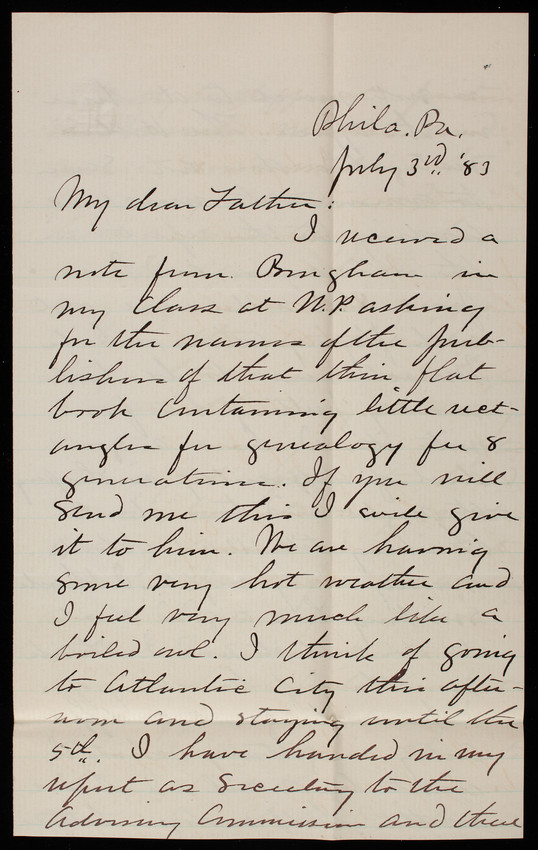 Phila. Pa.
July 3rd. '83
My dear Father:
I received a
note from Bingham in
my Class at W.P. asking
for the names of the pub-
lishers of that thin flat
book containing little rect-
angles for genealogy for 8
generations. If you will
send me this I will give
it to him. We are having
some very hot weather and
I feel very much like a
boiled owl. I think of going
to Atlantic City this after-
noon and staying until the
5th. I have handed in my
report as Secretary to the
Advisory Commission and there